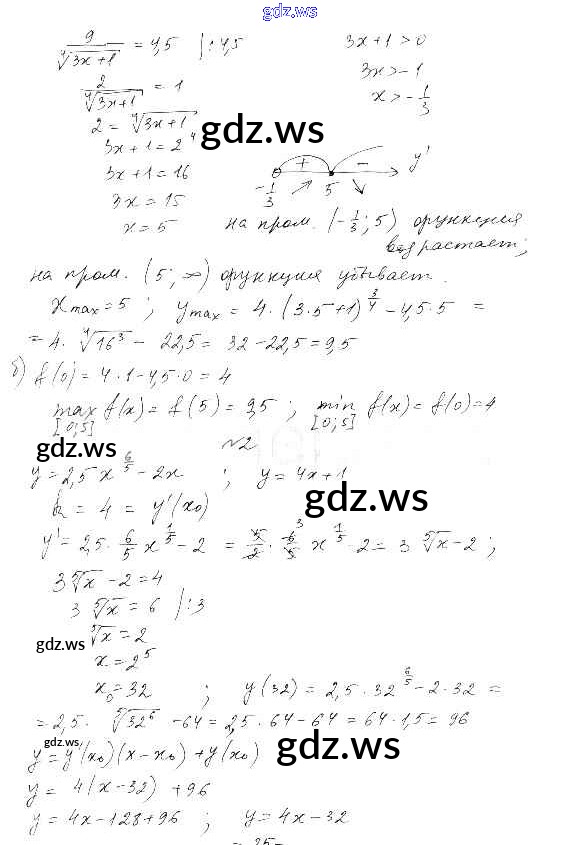 gdz.ws
9/⁴√(3x+1) = 4,5 |:4,5    3x+1>0
2/⁴√(3x+1) = 1    3x>-1
2 = ⁴√(3x+1)    x>-1/3
gdz.ws
3x+1=2⁴
3x+1=16    + - y'
3x=15    -1/3 ↗ 5 ↘
x=5    на пром. (-1/3; 5) функция
возрастает;
на пром. (5; ∞) функция убывает.
xmax=5 ; ymax = 4·(3·5+1)^(3/4) - 4,5·5 =
= 4·⁴√16³ - 22,5 = 32-22,5=9,5
б) f(0) = 4·1-4,5·0=4
max f(x) = f(5) = 9,5 ; min f(x)=f(0)=4
[0;5] [0;5]
gdz.ws
№2
y=2,5x^(6/5) - 2x ; y=4x+1
k = 4 = y'(x₀)
gdz.ws
y'= 2,5·6/5 x^(1/5) - 2 = 5/2·6/5 x^(1/5) - 2 = 3 ⁵√x - 2 ;
3⁵√x - 2 = 4
3 ⁵√x = 6 |:3
gdz.ws
⁵√x = 2
x=2⁵
x₀=32 ; y(32) = 2,5·32^(6/5) - 2·32 =
= 2,5·⁵√32⁶ - 64 = 2,5·64-64 = 64·1,5 = 96
gdz.ws
y=y'(x₀)(x-x₀)+y(x₀)
gdz.ws
y= 4(x-32) + 96
y= 4x-128+96 ; y=4x-32